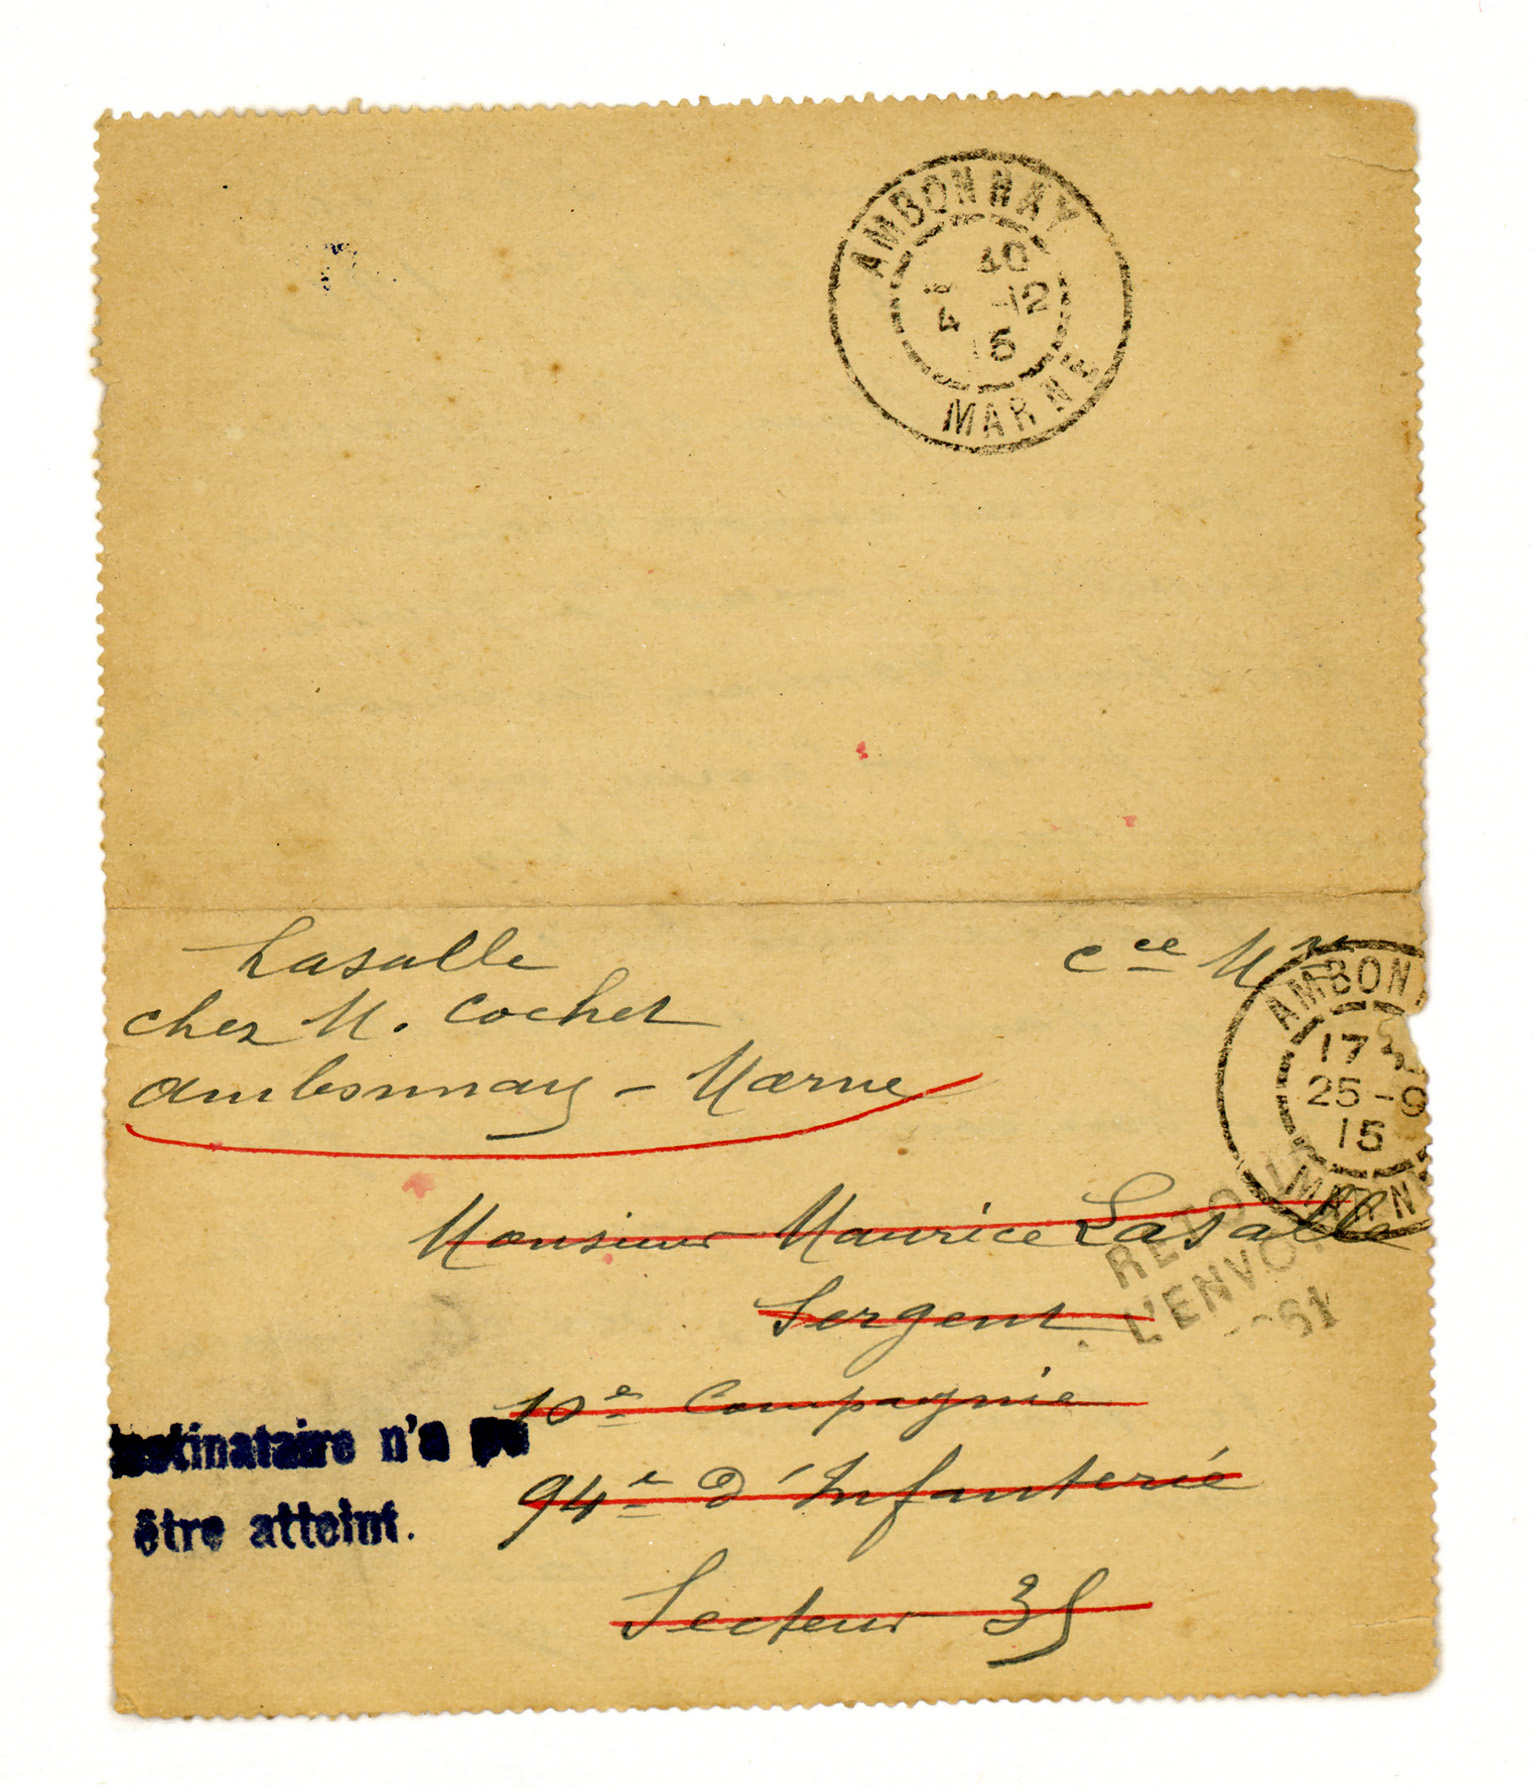 AMBONNAY
10
4 -12
15
MARNE
Lasalle
chez M. Cochet
Ambonnay - Marne
Cce Mre
AMBON
17
25-9
15
MARN
RETOUR
L'ENVOY
Monsieur Maurice Lasalle
Sergent
10e Compagnie
94e d'Infanterie
Secteur 35
estinataire n'a pu
être atteint.